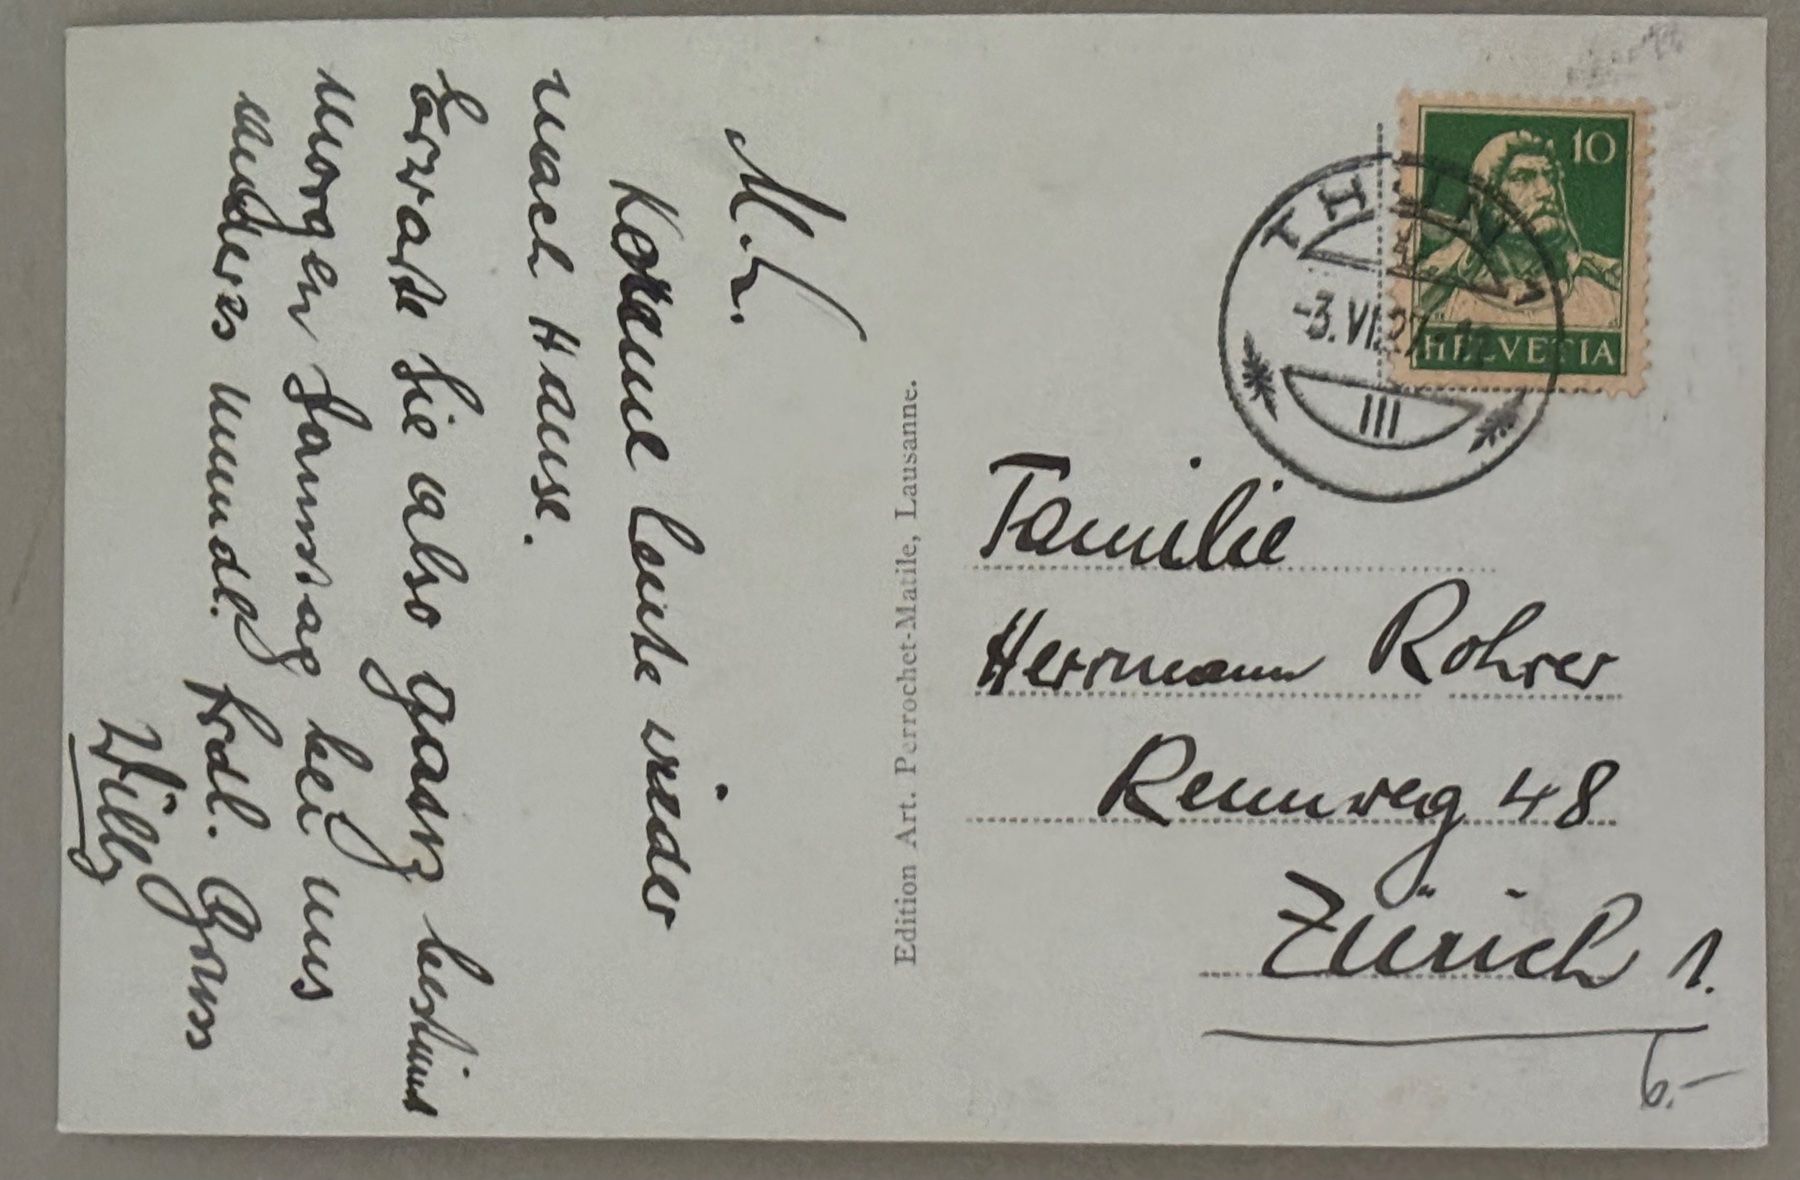 M. L.
Komme heute wieder
nach Hause.
Erwarte Sie also ganz bestimmt
morgen Samstag bei uns
anderes mündl. frdl. Gruss
Willy
Edition Art. Perrochet-Matile, Lausanne.
10
HELVETIA
THUN 1
-3.VI.27
III
Familie
Herrmann Rohrer
Rennweg 48
Zürich 1.
6.-